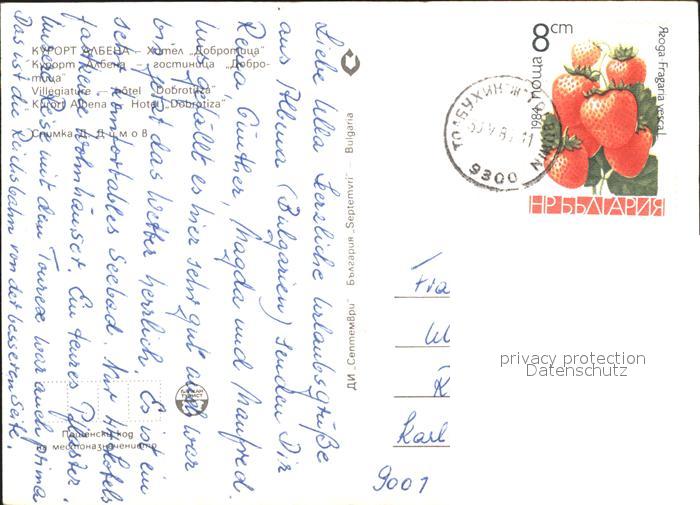 КУРОРТ АЛБЕНА – Хотел „Добротица"
Курорт Албена – гостиница „Добро-
тица"
Villégiature – hôtel „Dobrotiza"
Kurort Albena – Hotel „Dobrotiza"
Снимка Д. Димов
Liebe Ulla Herzliche Urlaubsgrüße
aus Albena (Bulgarien) senden Dir
Günther, Magda und Manfred.
Uns gefällt es hier sehr gut und war
bis jetzt das Wetter herrlich. Es ist ein
sehr komfortables Seebad. Nur Hotels
keine Wohnhäuser. Ein teures Pflaster.
Unsere Reise mit dem Tourex war auch prima
Das ist die Reichsbahn von der besseren Seite.
БАЛКАН
ТУРИСТ
Пощенски код
на местоназначението
ДИ „Септември" България „Septemvri" Bulgaria
8 cm
1984 поща
Ягода-Fragaria vesca l.
НР БЪЛГАРИЯ
ТОЛБУХИН
9300
11
Fra
Ul
K
Karl
9001
privacy protection
Datenschutz